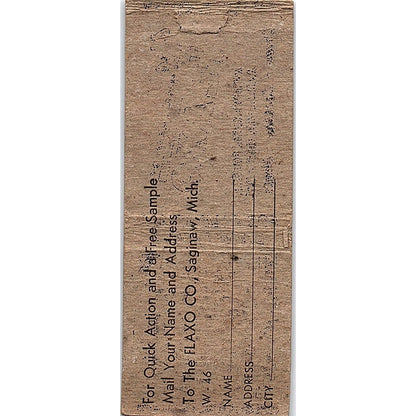 For Quick Action and a Free Sample
Mail Your Name and Address
To The FLAXO CO., Saginaw, Mich.
W-46
NAME
ADDRESS
CITY